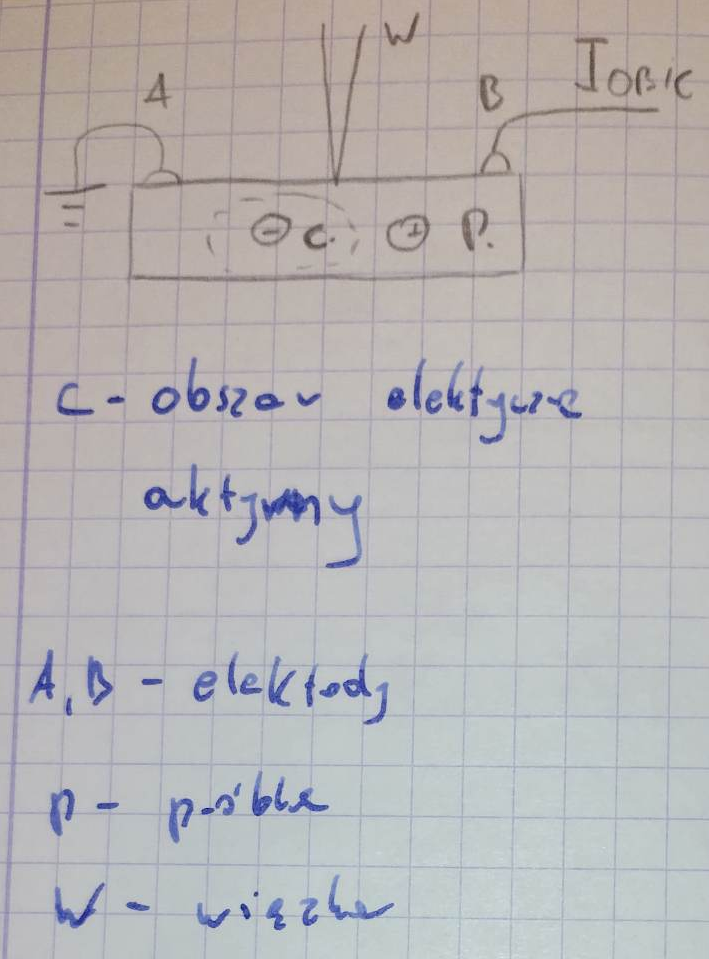 W
A
B
I OBIC
⊖ C. ⊕ P.
C - obszar elektycznie
aktywny
A, B - elektody
P - próbka
W - wiązka